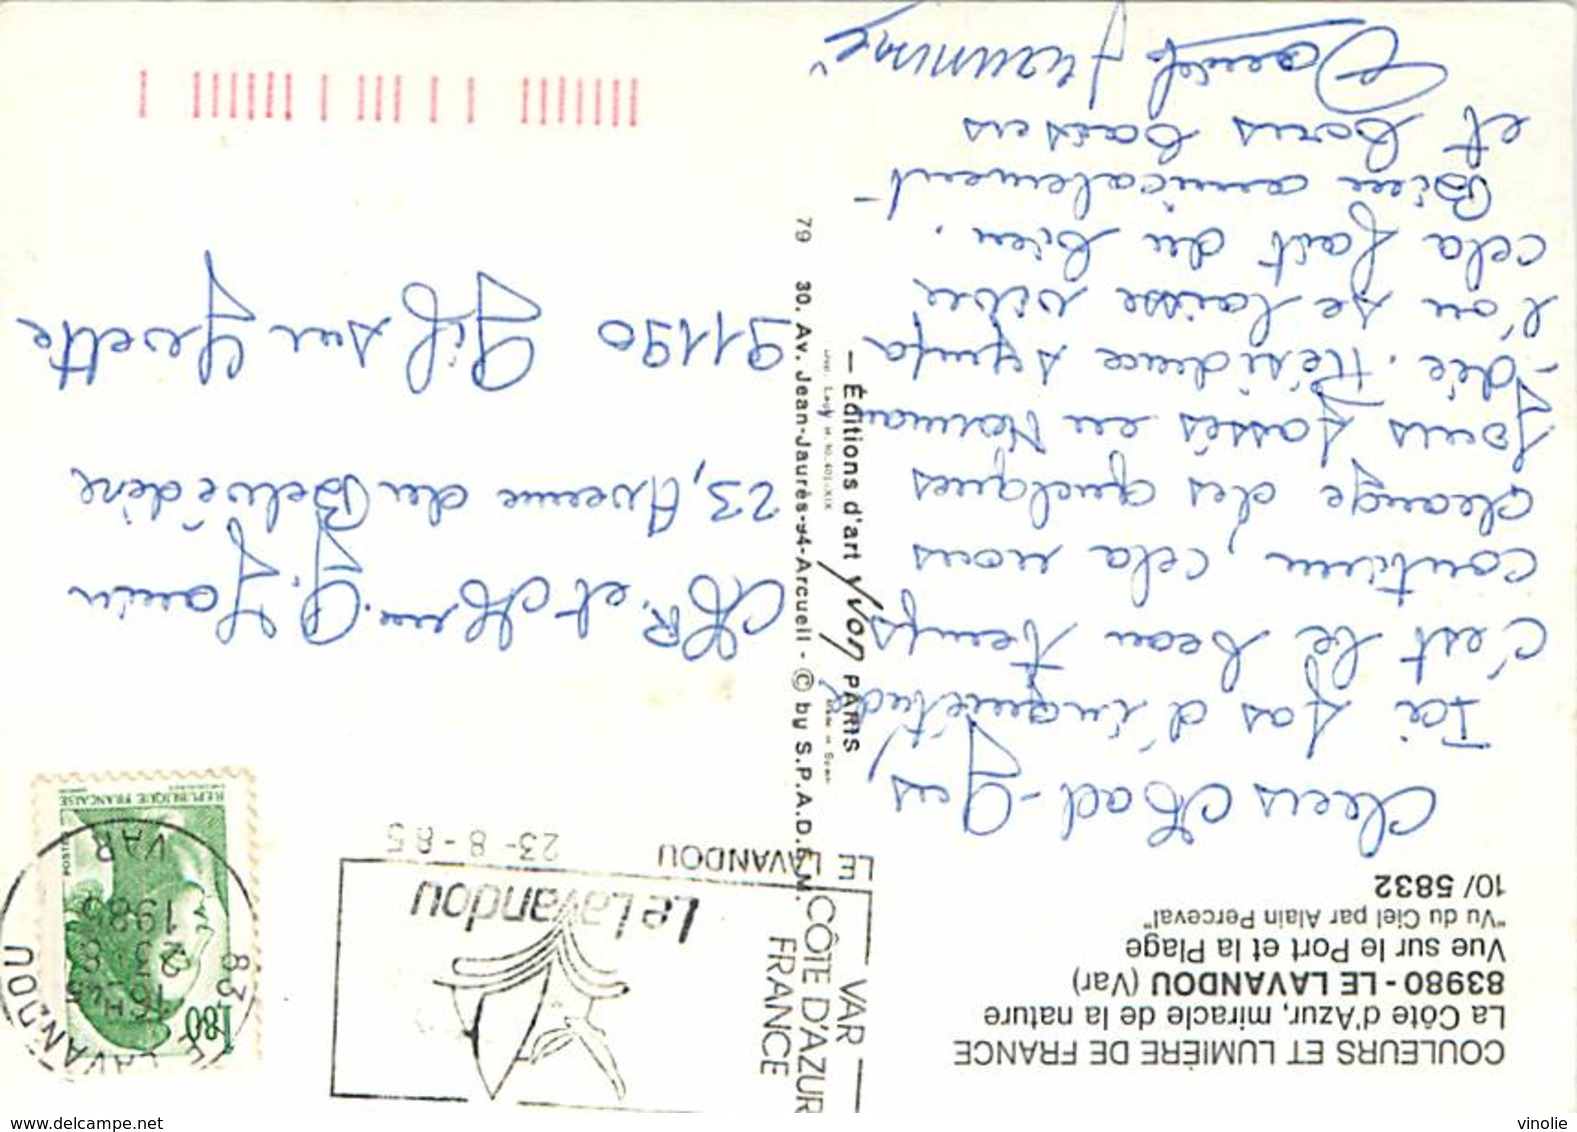 COULEURS ET LUMIÈRE DE FRANCE
La Côte d'Azur, miracle de la nature
83980 - LE LAVANDOU (Var)
Vue sur le Port et la Plage
"Vu du Ciel par Alain Perceval"
10/ 5832
Chers Mad-Ges
Ici pas d'inquiétude,
C'est le beau temps
continu, cela nous
change des quelques
jours passés en Norman
-die. Résidence sympa
l'on se laisse vivre
cela fait du bien.
Bien amicalement
et bons baisers
VAR
CÔTE D'AZUR
FRANCE
Le Lavandou
LE LAVANDOU
23-8-85
83 LE LAVANDOU
16H45
23-8
1985
VAR
1,80
POSTES
REPUBLIQUE FRANCAISE
MR. et Mme. P. Janin
23, Avenue du Belvédère
91190 Gif sur Yvette
— Éditions d'art Yvon PARIS
79 30, Av. Jean-Jaurès-94-Arcueil - © by S.P.A.D.E.M.
vinolie